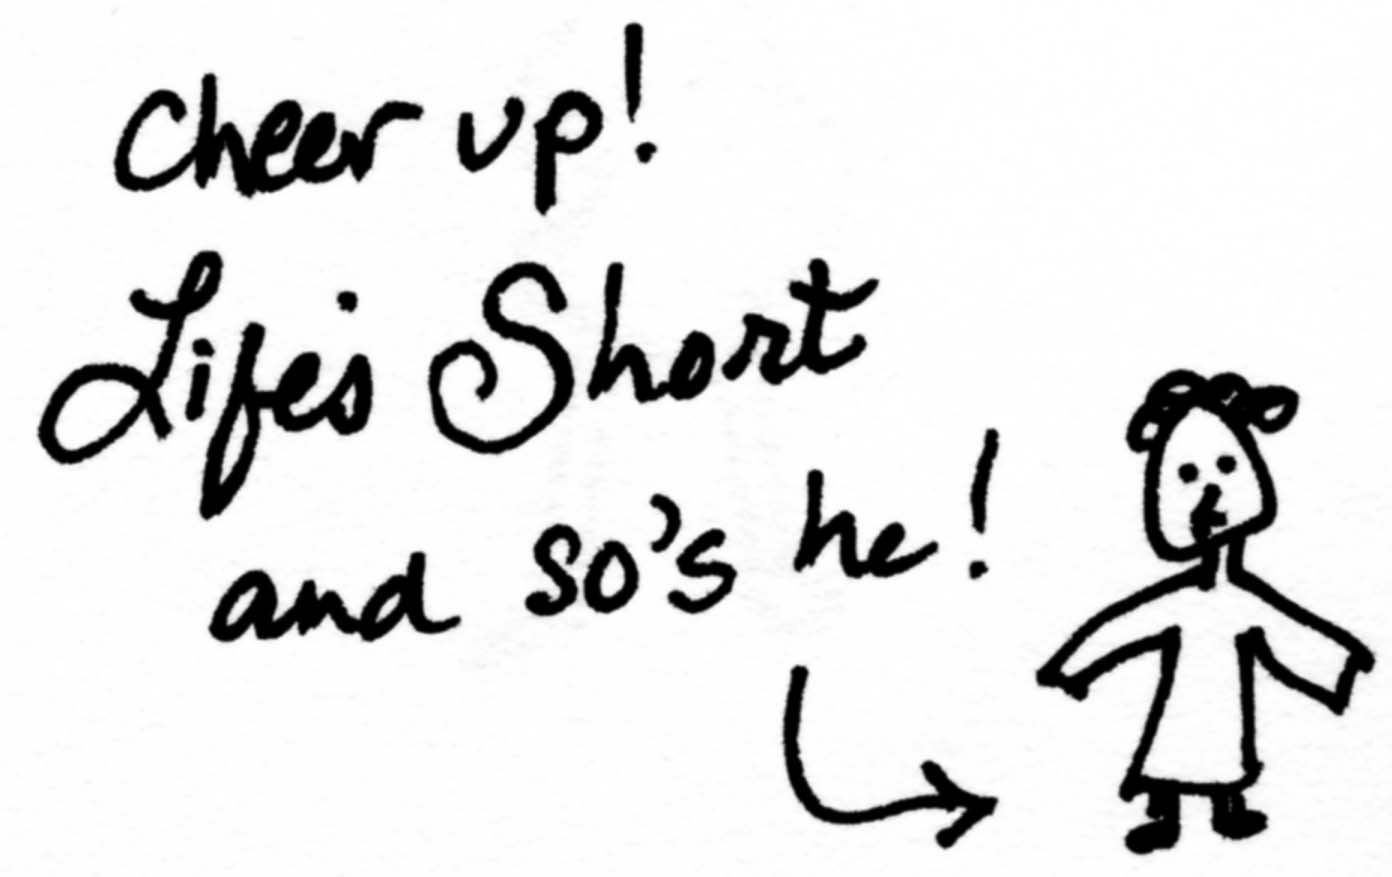 Cheer up!
Life's Short
and so's he!